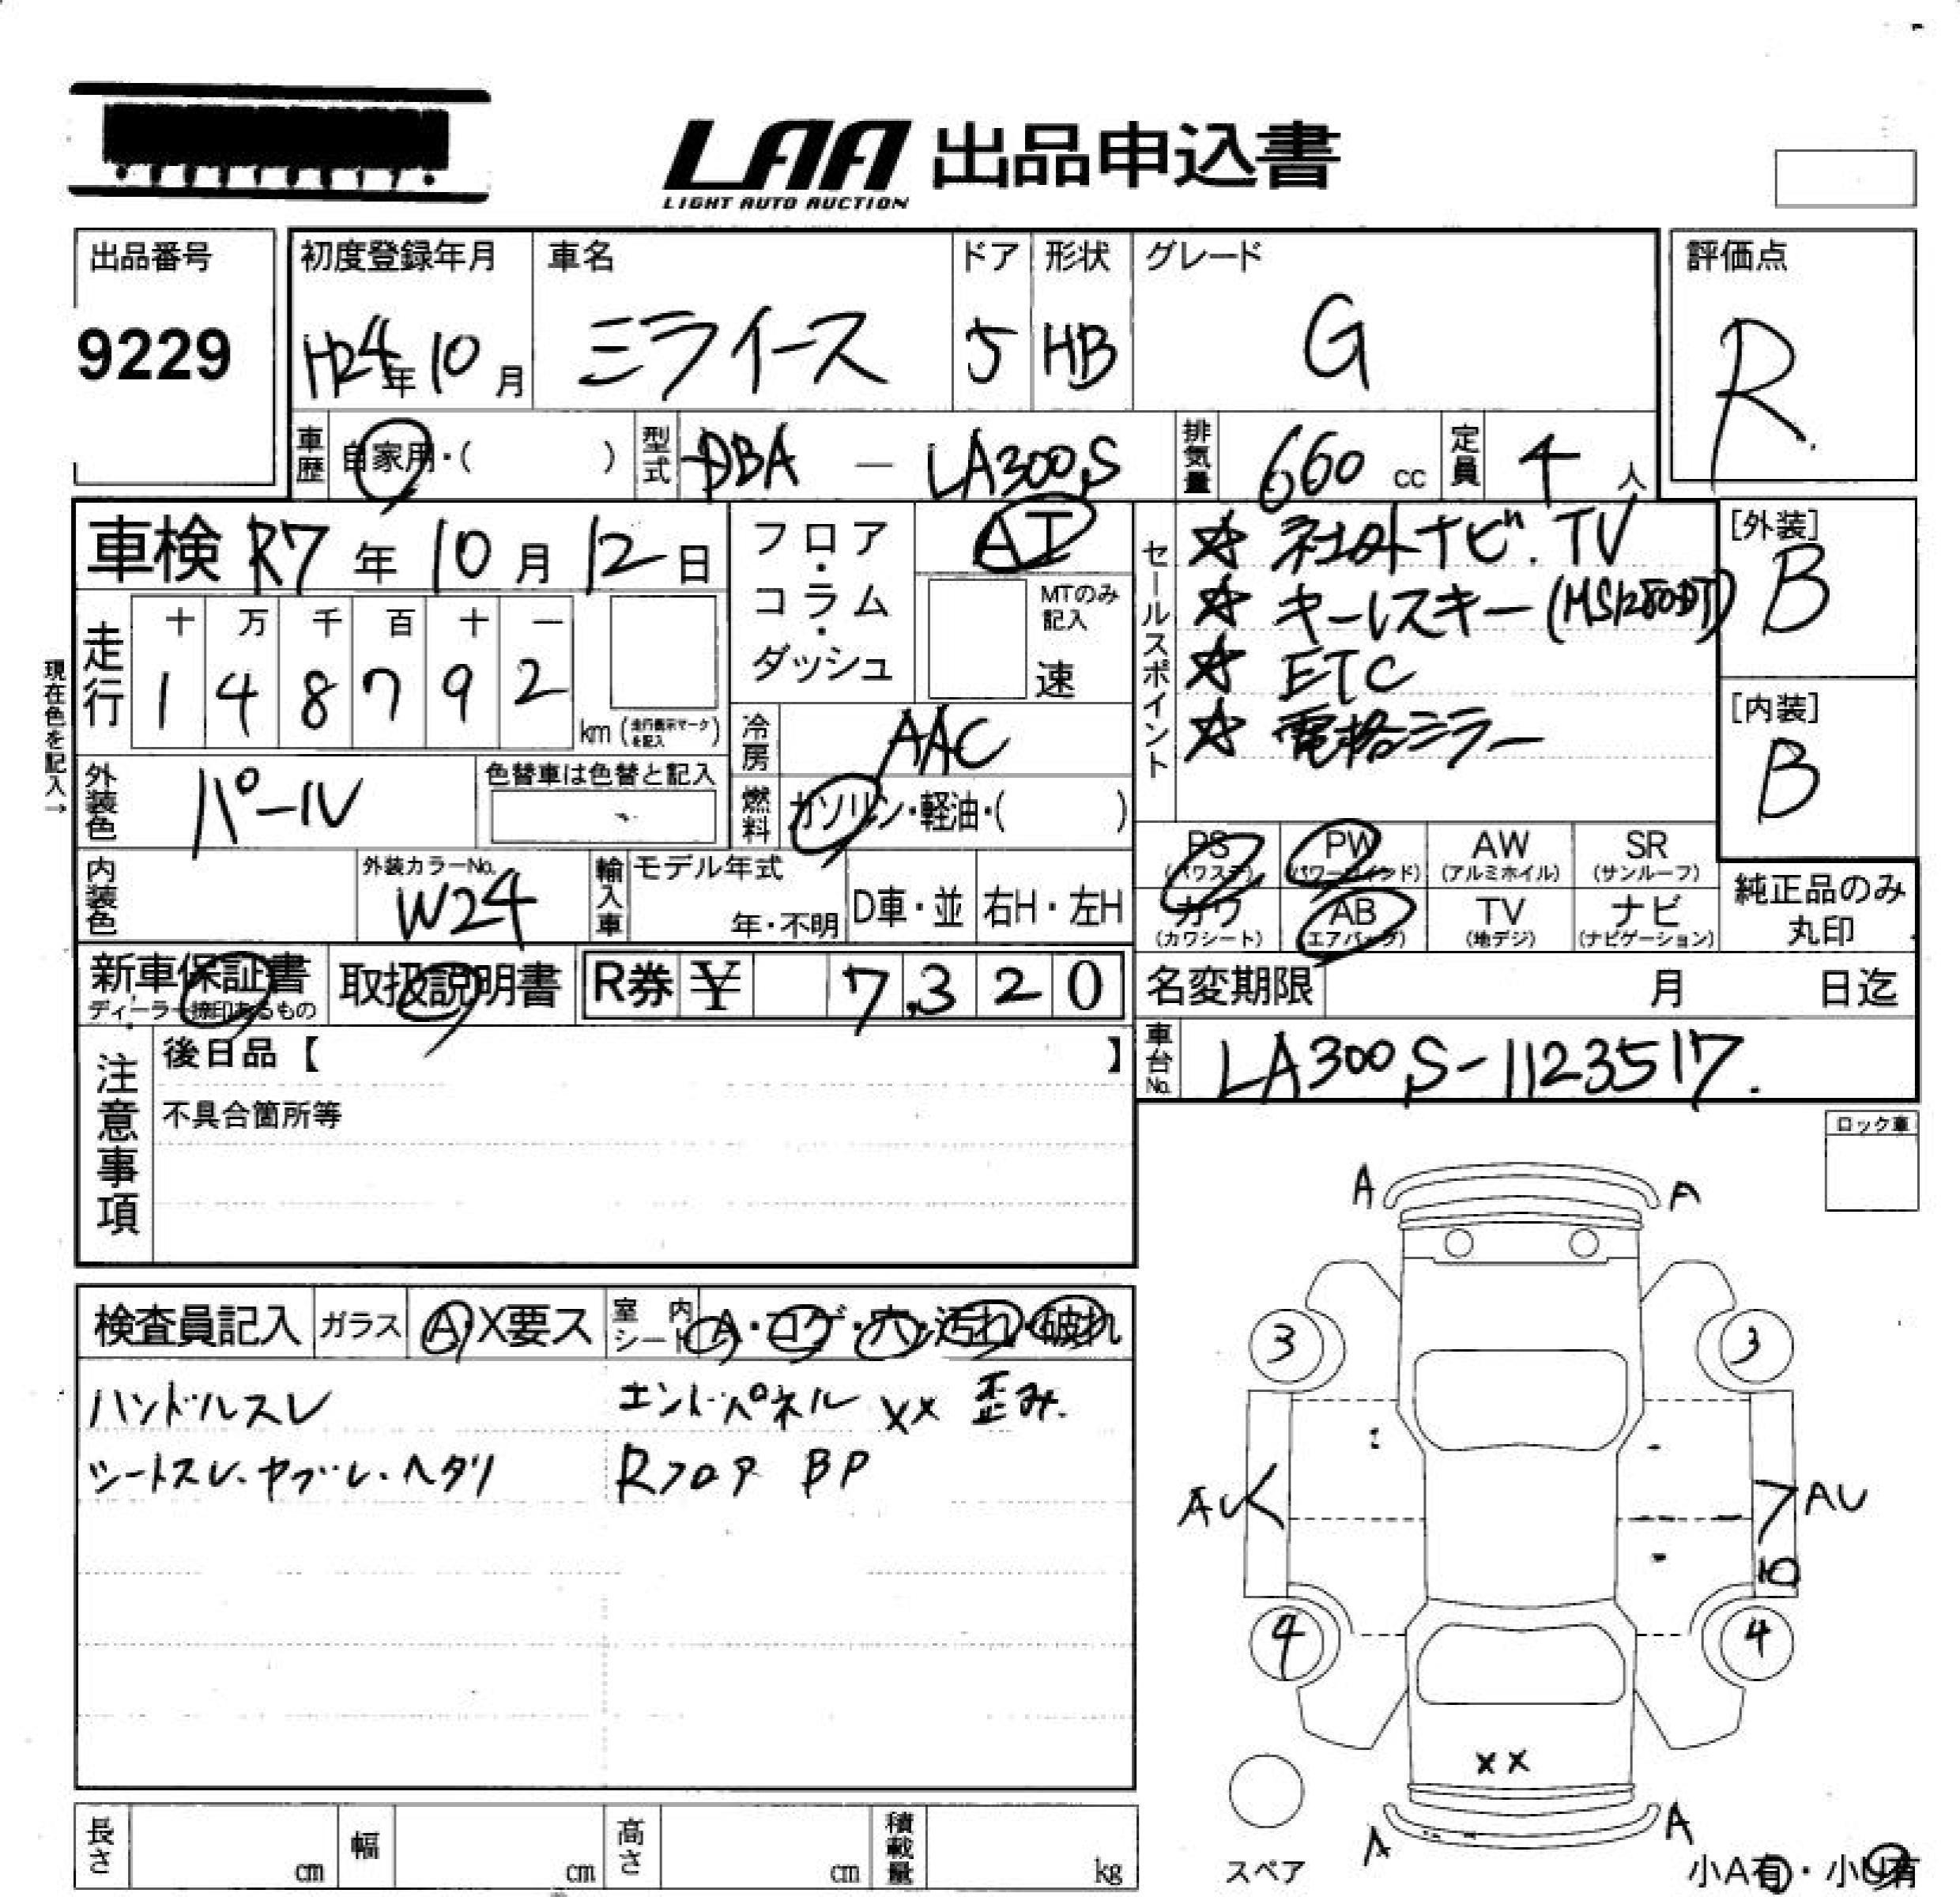 LAA 出品申込書
LIGHT AUTO AUCTION
出品番号
9229
初度登録年月
H24年10月
車名
ミライース
ドア
5
形状
HB
グレード
G
評価点
R
車歴
自家用・( )
型式
DBA - LA300S
排気量
660 cc
定員
4 人
車検 R7年10月12日
フロア・コラム・ダッシュ
AT
MTのみ記入
速
現在色を記入→
走行
十 万 千 百 十 一
1 4 8 7 9 2
km (走行表示マークを記入)
冷房
AAC
外装色
パール
色替車は色替と記入
燃料
ガソリン・軽油・( )
内装色
外装カラーNo.
W24
輸入車
モデル年式
年・不明
D車・並
右H・左H
セールスポイント
☆ 社外ナビ.TV
☆ キーレスキー(MS1280DT)
☆ ETC
☆ 電格ミラー
[外装]
B
[内装]
B
PS
(パワステ)
PW
(パワーウインド)
AW
(アルミホイル)
SR
(サンルーフ)
カワ
(カワシート)
AB
(エアバッグ)
TV
(地デジ)
ナビ
(ナビゲーション)
純正品のみ
丸印
新車保証書
ディーラー捺印あるもの
取扱説明書
R券 ¥ 7,320
名変期限 月 日迄
車台No.
LA300S-1123517.
注意事項
後日品【 】
不具合箇所等
ロック車
検査員記入
ガラス
A・X要ス
室内シート
A・コゲ・穴・汚れ・破れ
ハンドルスレ
シートスレ・ヤブレ・ヘタリ
エンドパネル XX 歪み.
Rフロア BP
A A
3 3
AU AU
10
4 4
XX
A A
スペア
小A有・小U有
長さ cm
幅 cm
高さ cm
積載量 kg